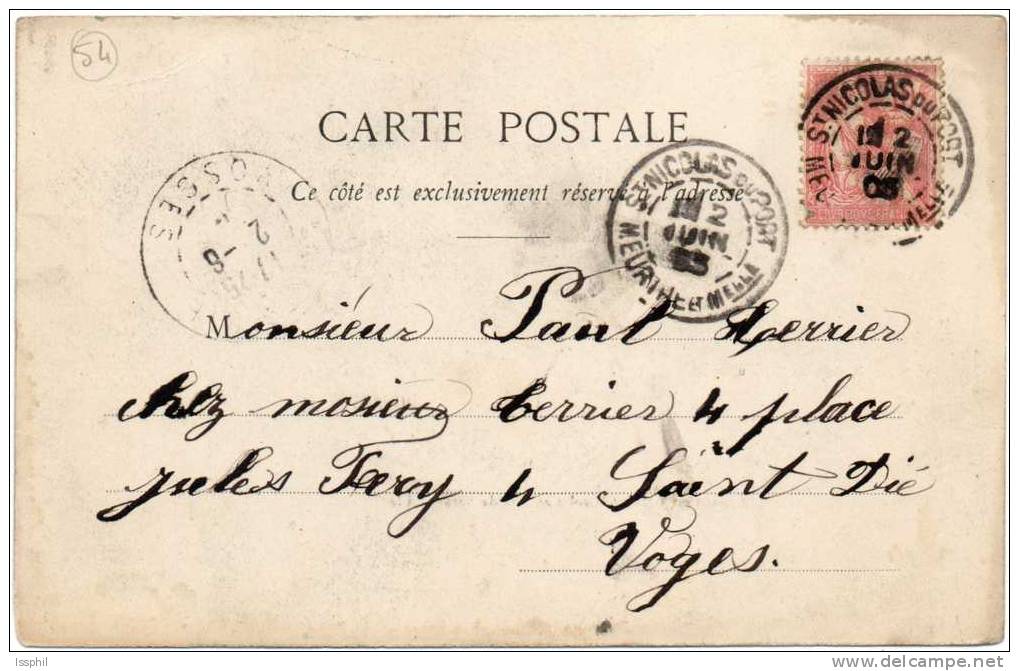 54
CARTE POSTALE
Ce côté est exclusivement réservé à l'adresse
ST NICOLAS DU PORT
12 2
JUIN
03
MEURTHE ET MELLE
ST NICOLAS DU PORT
12 2
JUIN
03
MEURTHE ET MELLE
VOSGES
Monsieur Paul Terrier
chez mosieur terrier 4 place
jules Fery 4 Saint Dié
Voges.
Issphil
delcampe.net